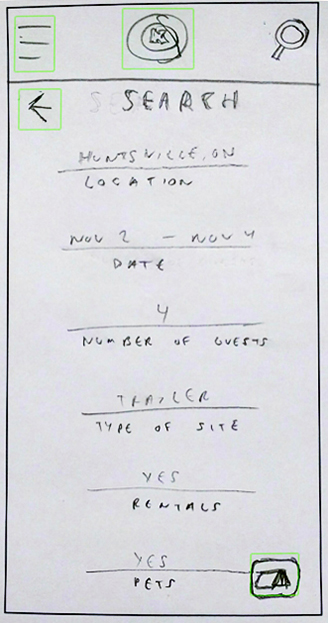 SEARCH
HUNTSVILLE, ON
LOCATION
NOV 2 - NOV 4
DATE
4
NUMBER OF GUESTS
TRAILER
TYPE OF SITE
YES
RENTALS
YES
PETS